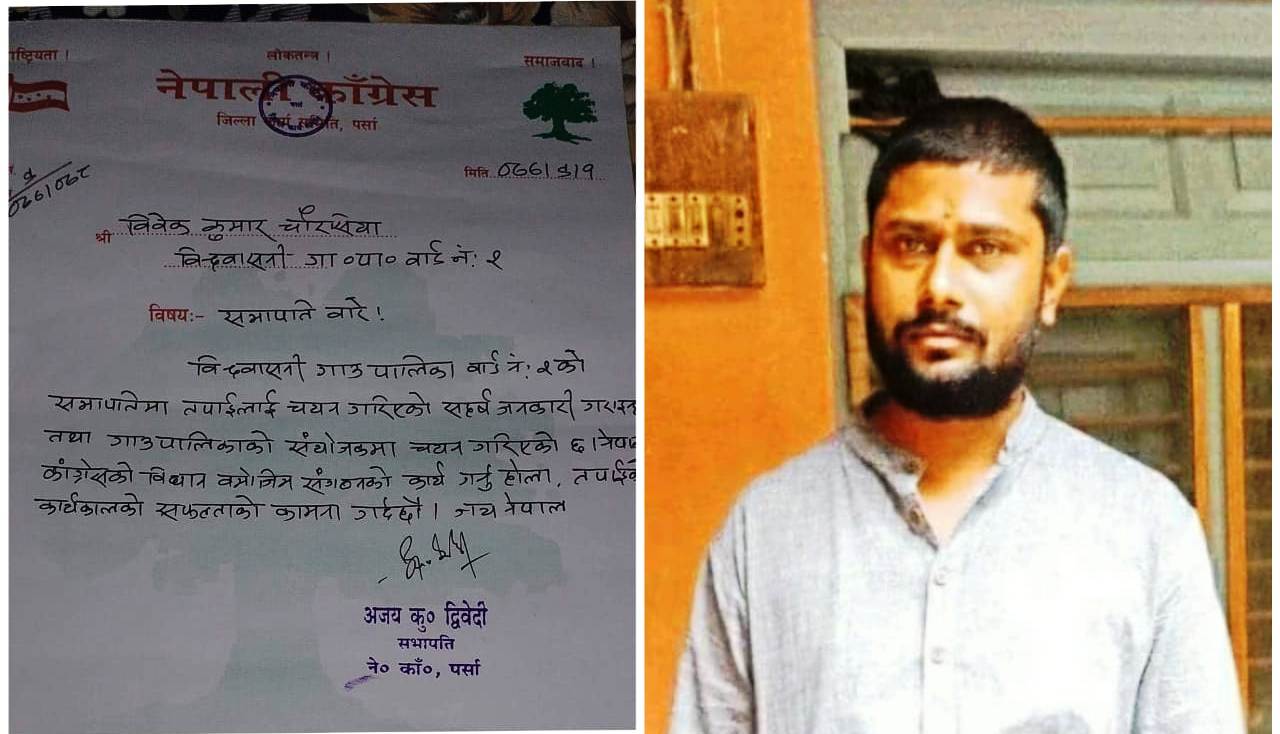 ाष्ट्रियता । लोकतन्त्र । समाजवाद ।
नेपाली काँग्रेस
जिल्ला समिति, पर्सा
मिति
श्री विवेक कुमार चौरसिया
गा०पा० वार्ड नं: १
विषय:- सभापति बारे !
गाउपालिका वार्ड नं: १को
सभापतिमा तपाईलाई चयन गरिएको सहर्ष जनकारी
तथा गाउपालिकाको संयोजकमा चयन गरिएको छ ।
कांग्रेसको विधान वमोजिम संगठनको कार्य गर्नु होला,
कार्यकालको सफलताको कामना गर्दछौ । जय नेपाल
अजय कु० द्विवेदी
सभापति
ने० काँ०, पर्सा